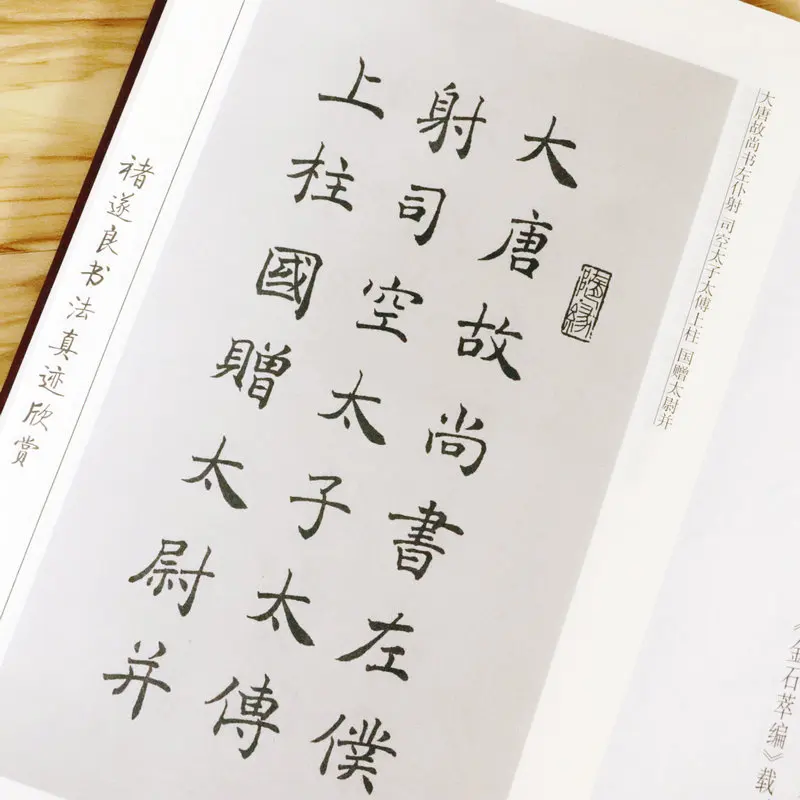 大唐故尚书左仆射 司空太子太傅上柱 国赠太尉并
大唐故尚書左僕
射司空太子太傅
上柱國贈太尉并
陶缘
褚遂良书法真迹欣赏
《金石萃编》载